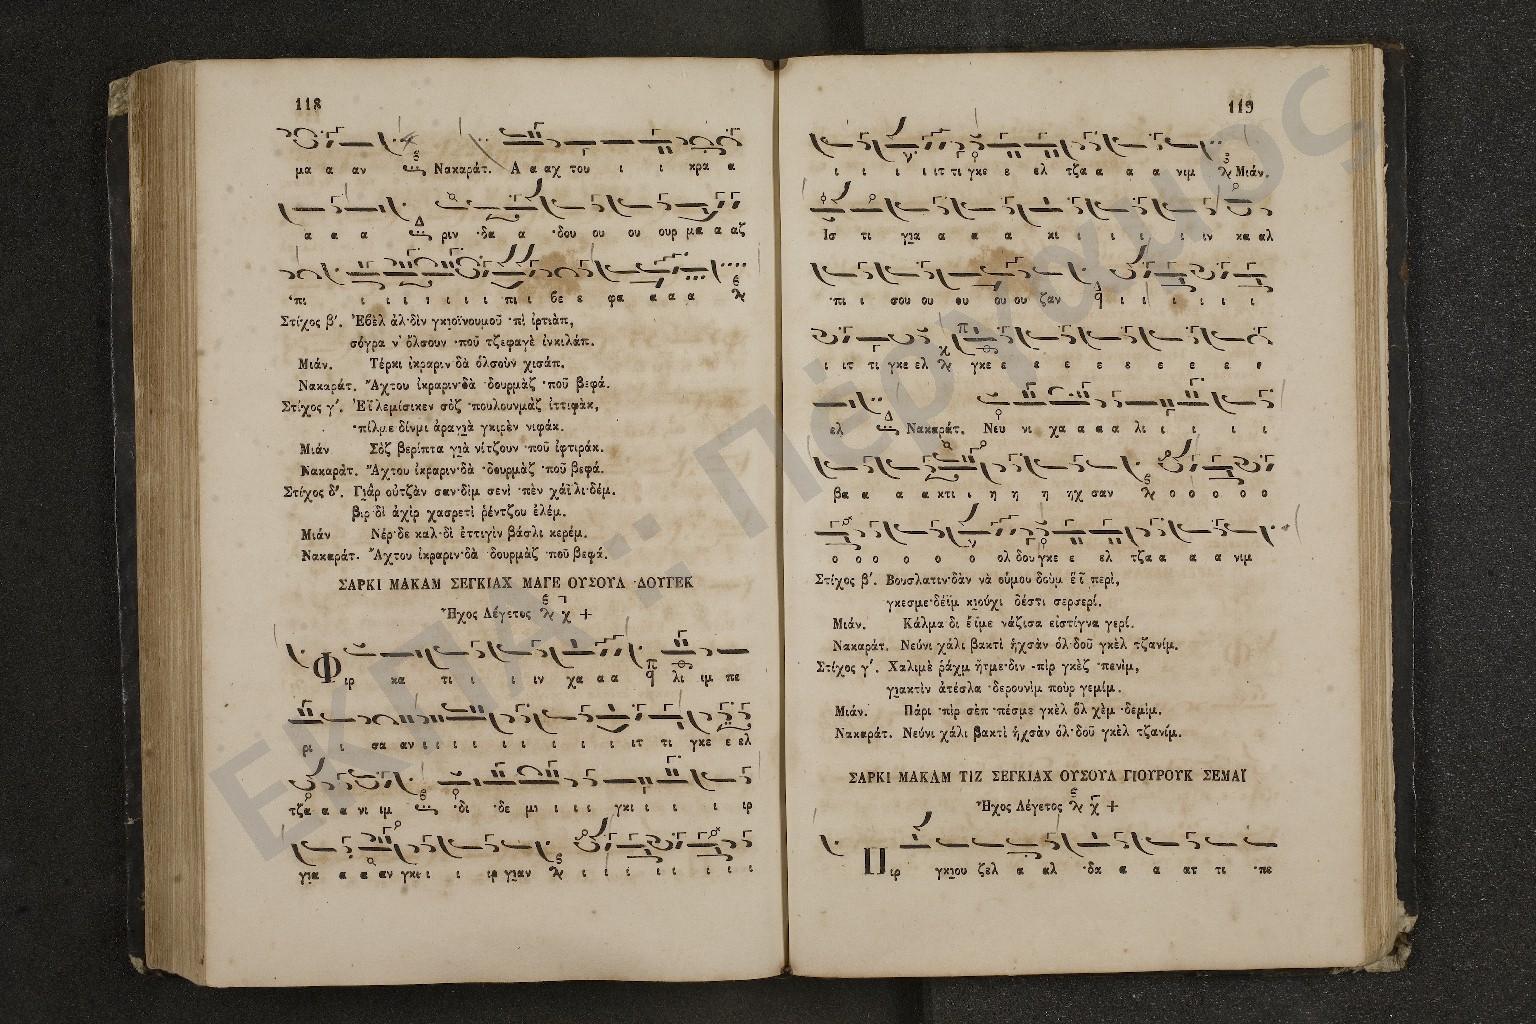 118
μα α αν Νακαράτ. Α α αχ του ι ι κρα α
α α α ριν ·δα α ·δου ου ου ουρ μα α αζ
·πι ι ι ι ι ι ι πι ι βε ε φα α α α
Στίχος β΄. Ἐβὲλ ἀλ·δὶν γκιοϊνουμοῦ ·πὶ ἰρτιὰπ,
σόγρα ν' ὄλσουν ·ποῦ τζεφαγὲ ἰνκιλάπ.
Μιάν. Τέρκι ἰκραριν·δὰ ὀλσοὺν χισάπ.
Νακαράτ. Ἄχτου ἰκραριν·δὰ ·δουρμὰζ ·ποῦ βεφά.
Στίχος γ΄. Ἐϊλεμίσικεν σὸζ ·πουλουνμὰζ ἰττιφὰκ,
·πίλμε δίνμι ἀραγιὰ γκιρὲν νιφάκ.
Μιάν Σὸζ βερίπτα γιὰ νίτζουν ·ποῦ ἰφτιράκ.
Νακαράτ. Ἄχτου ἰκραριν·δὰ ·δουρμὰζ ·ποῦ βεφά.
Στίχος δ΄. Γιὰρ οὐτζὰν σαν·δὶμ σενὶ ·πὲν χάϊλι·δέμ.
βιρ·δὶ ἀχὶρ χασρετὶ ῥέντζου ἐλέμ.
Μιάν Νέρ·δε καλ·δὶ ἐττιγὶν βάσλι κερέμ.
Νακαράτ. Ἄχτου ἰκραριν·δὰ ·δουρμὰζ ·ποῦ βεφά.
ΣΑΡΚΙ ΜΑΚΑΜ ΣΕΓΚΙΑΧ ΜΑΓΕ ΟΥΣΟΥΛ ·ΔΟΥΓΕΚ
Ἦχος Λέγετος
Φιρ κα τι ι ι ιν χα α α λι ιμ πε
ρι ι σα αν ι ι ι ι ι ι ι ι ι ιτ τι γκε ε ελ
τζα α α νι ιμ ·δι ·δε μι ι ι ι γκι ι ι ι ιρ
για α α αν γκι ι ι ιρ γιαν ι ι ι ι ι ι ι ι
119
ι ι ι ι ι ιτ τι γκε ε ελ τζα α α α νιμ Μιάν.
Ισ τι για α α α κι ι ι ι ι ιν κα αλ
·πι ι σου ου ου ου ου ζαν ι ι ι ι ι ι
ι ιτ τι γκε ελ γκε ε ε ε ε ε ε ε ε ε
ελ Νακαράτ. Νευ νι χα α α α λι ι ι ι ι
βα α α α κτι ι η η η ηχ σαν ο ο ο ο ο
ο ο ο ο ο ο ολ δου γκε ε ελ τζα α α α νιμ
Στίχος β΄. Βουσλατιν·δὰν νὰ οὐμου δοὺμ ἔϊ περὶ,
γκεσμε·δέϊμ κιούχι δέστι σερσερί.
Μιάν. Κάλμα δι ἔϊμε νάζισα εἰστίγνα γερί.
Νακαράτ. Νεύνι χάλι βακτὶ ἠχσὰν ὀλ·δοῦ γκὲλ τζανίμ.
Στίχος γ΄. Χαλιμὲ ῥάχμ ἤτμε·διν ·πὶρ γκὲζ ·πενὶμ,
γιακτὶν ἀτέσλα ·δερουνὶμ ποὺρ γεμίμ.
Μιάν. Πάρι ·πὶρ σὲπ ·πέσμε γκὲλ ὂλ χὲμ ·δεμὶμ.
Νακαράτ. Νεύνι χάλι βακτὶ ἠχσὰν ὀλ·δοῦ γκὲλ τζανίμ.
ΣΑΡΚΙ ΜΑΚΑΜ ΤΙΖ ΣΕΓΚΙΑΧ ΟΥΣΟΥΛ ΓΙΟΥΡΟΥΚ ΣΕΜΑΪ
Ἦχος Λέγετος
Πιρ γκιου ζελ α αλ ·δα α α ατ τι ·πε